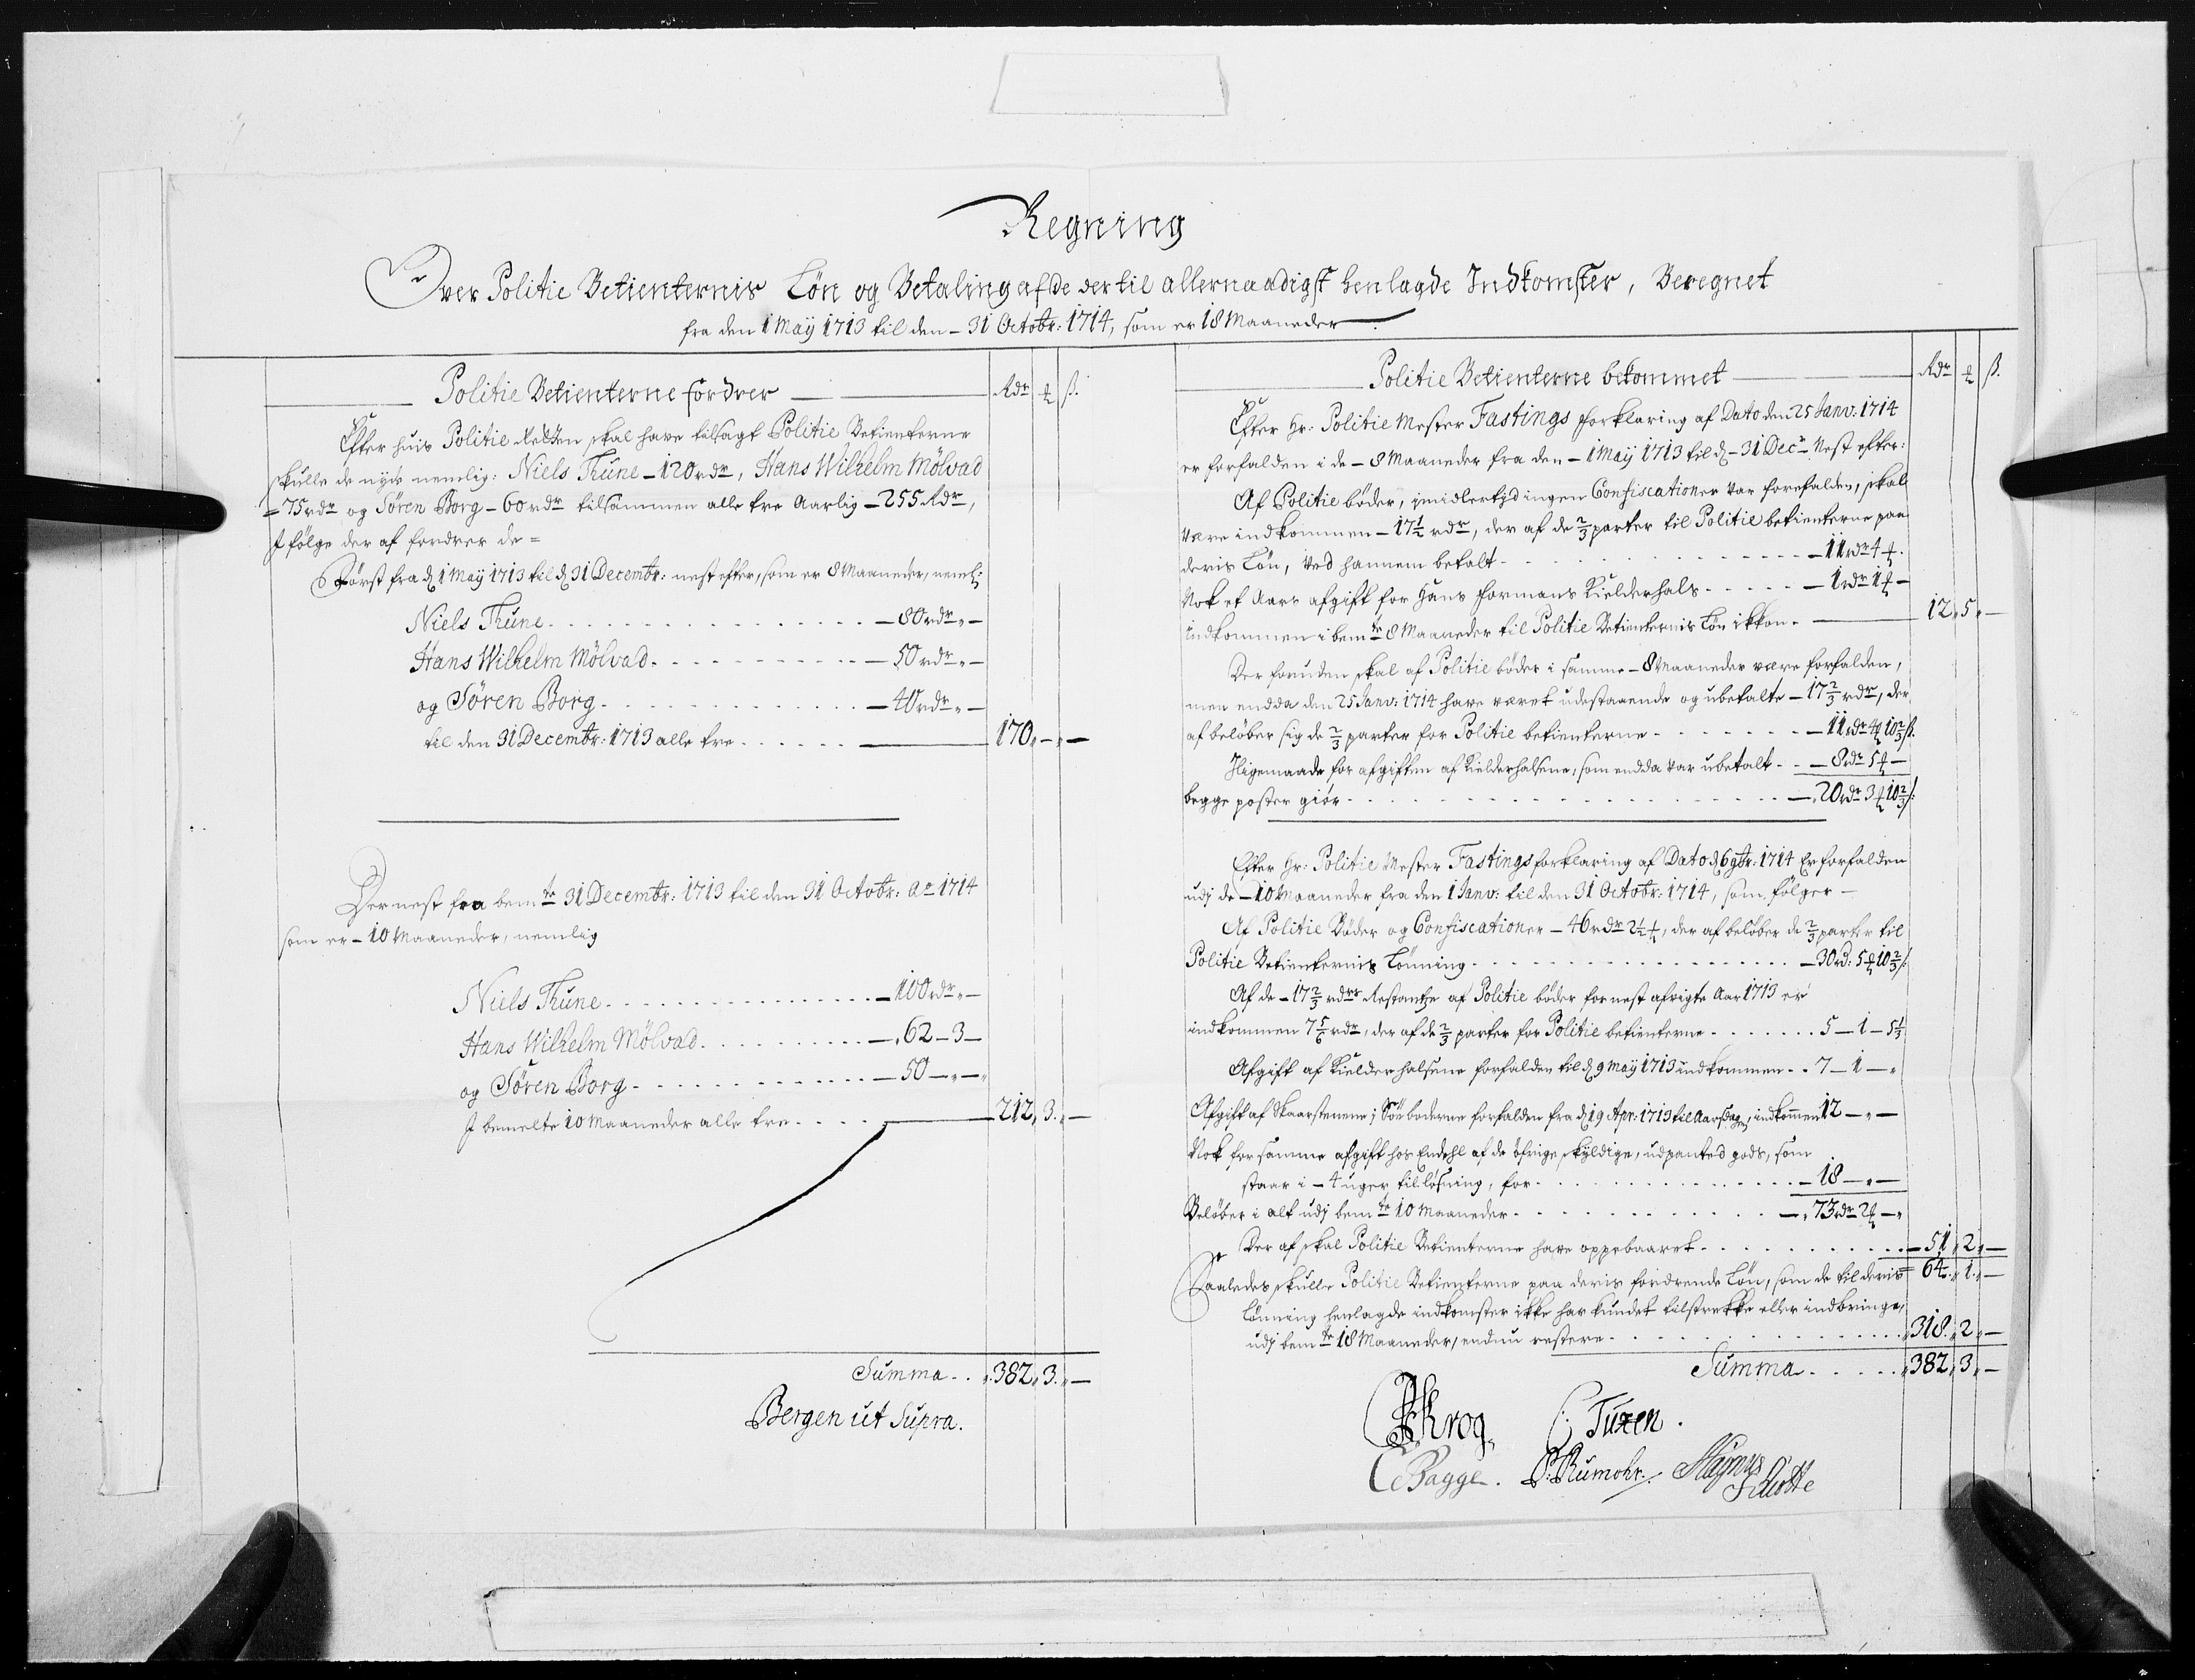 Regning
Over Politie Betienternis Løn og Betaling af de der til allernaadigst henlagde Indkomster, Beregnet
fra den 1 Maÿ 1713 til den - 31 Octobr: 1714, som er 18 Maaneder
Politie Betienterne fordrer
Rdr ß.
Efter huis Politie Retten skal have tilsagt Politie Betienterne
skulle de nyde nemlig: Niels Thune - 120 rdr, Hans Wilhelm Mölvad
- 75 rdr og Sören Borg - 60 rdr tilsammen alle tre Aarlig - 255 Rdr,
J følge der af fordrer de =
Først fra d 1 Maÿ 1713 til d 31 Decembr: nest efter, som er 8 Maaneder, neml:
Niels Thune - 80 rdr „ -
Hans Wilhelm Mölvad - 50 rdr „ -
og Sören Borg - 40 rdr „ -
til den 31 Decembr: 1713 alle tre 170 „ - „ -
Der nest fra bemte 31 Decembr: 1713 til den 31 Octobr: Ao 1714
som er - 10 Maaneder, nemlig
Niels Thune - 100 rdr „ -
Hans Wilhelm Mölvad - 62 - 3 -
og Sören Borg - 50 - „ -
J bemelte 10 Maaneder alle tre 212 „ 3 „ -
Summa 382 „ 3 „ -
Bergen ut Supra.
Politie Betienterne bekommet
Rdr ß.
Efter Hr: Politie Mester Fastings forklaring af Dato den 25 Janv: 1714
er forfalden i de - 8 Maaneder fra den - 1 Maÿ 1713 til d - 31 Decr Nest efter:
Af Politie bøder, imidlertjd ingen Confiscationer var forefalden, skal
være indkommen - 17½ rdr, der af de ⅔ parter til Politie betienterne paa
deris Løn, ved hannem betalt - 11 rdr 4
Nok et Aars afgift for Hans formans Kielderhals - 1 rdr 1 -
indkommen i bemte 8 Maaneder til Politie Betienternis Løn 12 „ 5 „ -
Der foruden skal af Politie bøder i samme - 8 Maaneder være forfalden,
men endda den 25 Janv: 1714 have været udestaaende og ubetalte - 17⅔ rdr, der
af beløber sig de ⅔ parter for Politie betienterne - 11 rdr 4 10⅔ ß.
Jligemaade for afgiften af Kielderhalsene, som endda var ubetalt - 8 rdr 5 -
begge poster giør - 20 rdr 3 10⅔ ß
Efter Hr: Politie Mester Fastings forklaring af Dato d 6 9br: 1714 Er forfalden
udj de - 10 Maaneder fra den 1 Janv: til den 31 Octobr: 1714, som følger -
Af Politie Bøder og Confiscationer - 46 rdr 2½, der af beløber de ⅔ parter til
Politie Betienternis Lønning - 30 rd: 5 10⅔ ß
Af de - 17⅔ rdrs Restantze af Politie bøder for nest afvigte Aar 1713 er
indkommen 7⅚ rdr, der af de ⅔ parter for Politie betienterne 5 - 1 - 5⅓
Afgift af Kielderhalsene forfalden til d 9 Maÿ 1713 indkommen 7 - 1 - „
Afgift af Skaarstenene i Søe boderne forfalden fra d 19 Apr: 1713 til Aarsdagen, indkommen 12 - „ -
Nok for samme afgift hos Endehl af de øfrige skyldige, udpanted gods, som
staar i - 4 uger til løsning, for - 18 - „ -
Beløber i alt udj bemte 10 Maaneder - „ 73 rdr 2 - „
Der af skal Politie Betienterne have oppebaaret - 51 „ 2 „ -
64 „ 1 „ -
Saaledes skulle Politie Betienterne paa deris fordrende Løn, som de til deris
Lønning henlagde indkomster ikke har kundet tilstrekke eller indbringe,
udj bemte 18 Maaneder, endnu restere 318 „ 2 „ -
Summa 382 „ 3 „ -
Krog C: Tuxen.
Bagge. P: Rumohr.